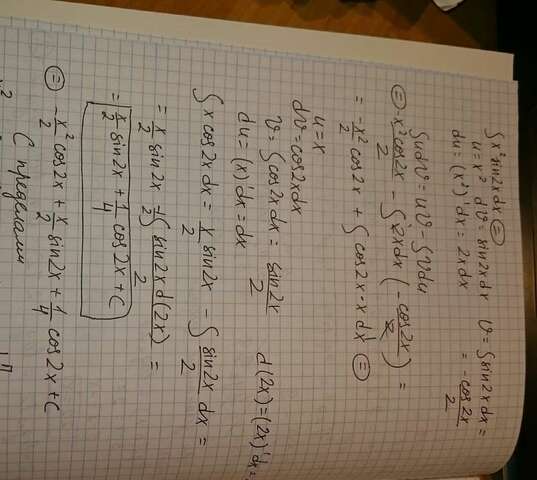 ∫x² sin2x dx ⊜
u = x² dv = sin2x dx v = ∫sin2x dx =
du = (x²)'dx = 2x dx = -cos2x/2
∫u dv = uv - ∫v du
⊜ -x² cos2x/2 - ∫2x dx (-cos2x/2) =
= -x²/2 cos2x + ∫cos2x · x dx ⊜
u = x
dv = cos2x dx
v = ∫cos2x dx = sin2x/2 d(2x) = (2x)'dx =
du = (x)'dx = dx
∫x cos2x dx = x/2 sin2x - ∫sin2x/2 dx =
= x/2 sin2x - 1/2 ∫sin2x d(2x)/2 =
= x/2 sin2x + 1/4 cos2x + C
⊜ -x²/2 cos2x + x/2 sin2x + 1/4 cos2x + C
С пределами